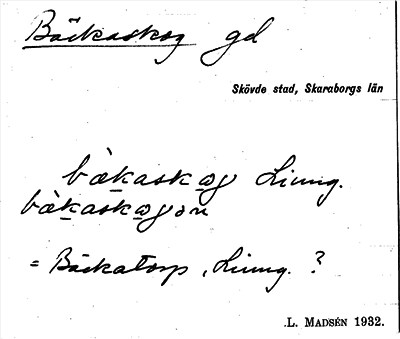 Bäckaskog gd
Skövde stad, Skaraborgs län
bàkaskog Ljung.
bàkaskogən
= Bäckatorp, Ljung. ?
.L. MADSÉN 1932.